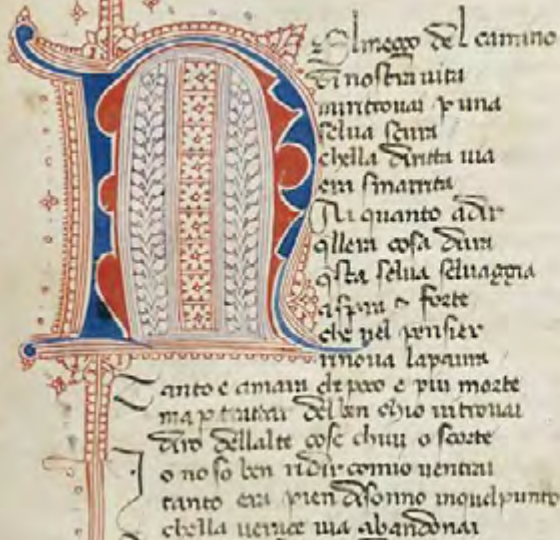 N
El mezzo del camino
di nostra uita
mi ritrouai p una
selua scura
chella diritta uia
era smarrita
Ai quanto a dir
qllera cosa dura
qsta selua seluaggia
aspra e forte
che nel pensier
rinoua la paura
Tanto e amara che poco e piu morte
ma p trattar del ben chio ui trouai
diro dellaltre cose
o no so ben ridir comio uentrai
tanto era pien di sonno in quel punto
chella uerace uia abandonai